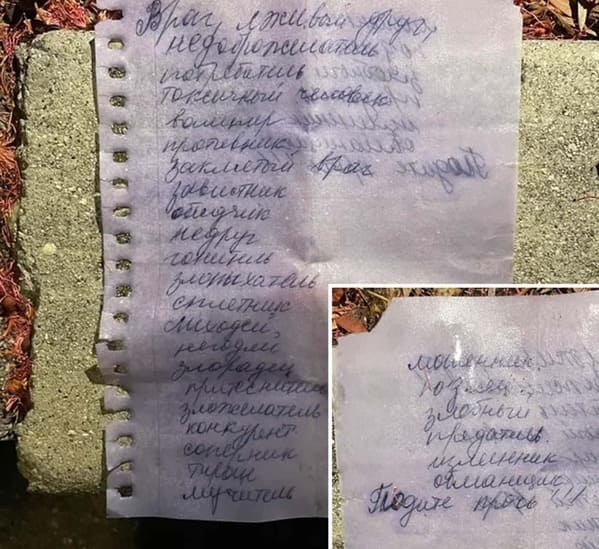 Враг, лживый друг,
недоброжелатель
потребитель
токсичный человек
вампир
противник
заклятый враг
завистник
обидчик
недруг
гонитель
злопыхатель
сплетник
лиходей
негодяй
злорадец
притеснитель
зложелатель
конкурент
соперник
тиран
мучитель
мошенник
злобный
предатель
изменник
обманщик
Подите прочь!!!